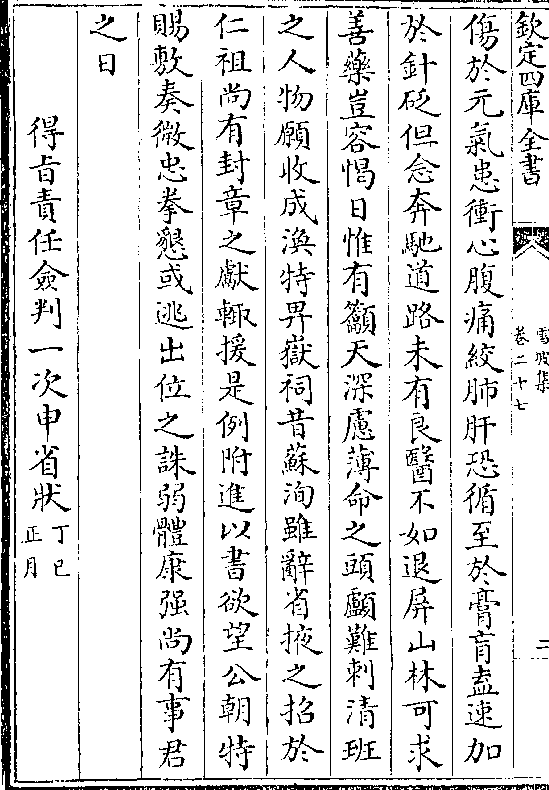 欽定四庫全書
雪坡集
卷二十七
二
傷於元氣患衝心腹痛絞肺肝恐循至於膏肓盍速加
於針砭但念奔馳道路未有良醫不如退屏山林可求
善藥豈容愒日惟有籲天深慮薄命之頭顱難刺清班
之人物願收成渙特畀嶽祠昔蘇洵雖辭省掖之招於
仁祖尚有封章之獻輙援是例附進以書欲望公朝特
賜敷奏微忠拳懇或逃出位之誅弱體康强尚有事君
之日
得㫖責任僉判一次申省狀丁巳正月